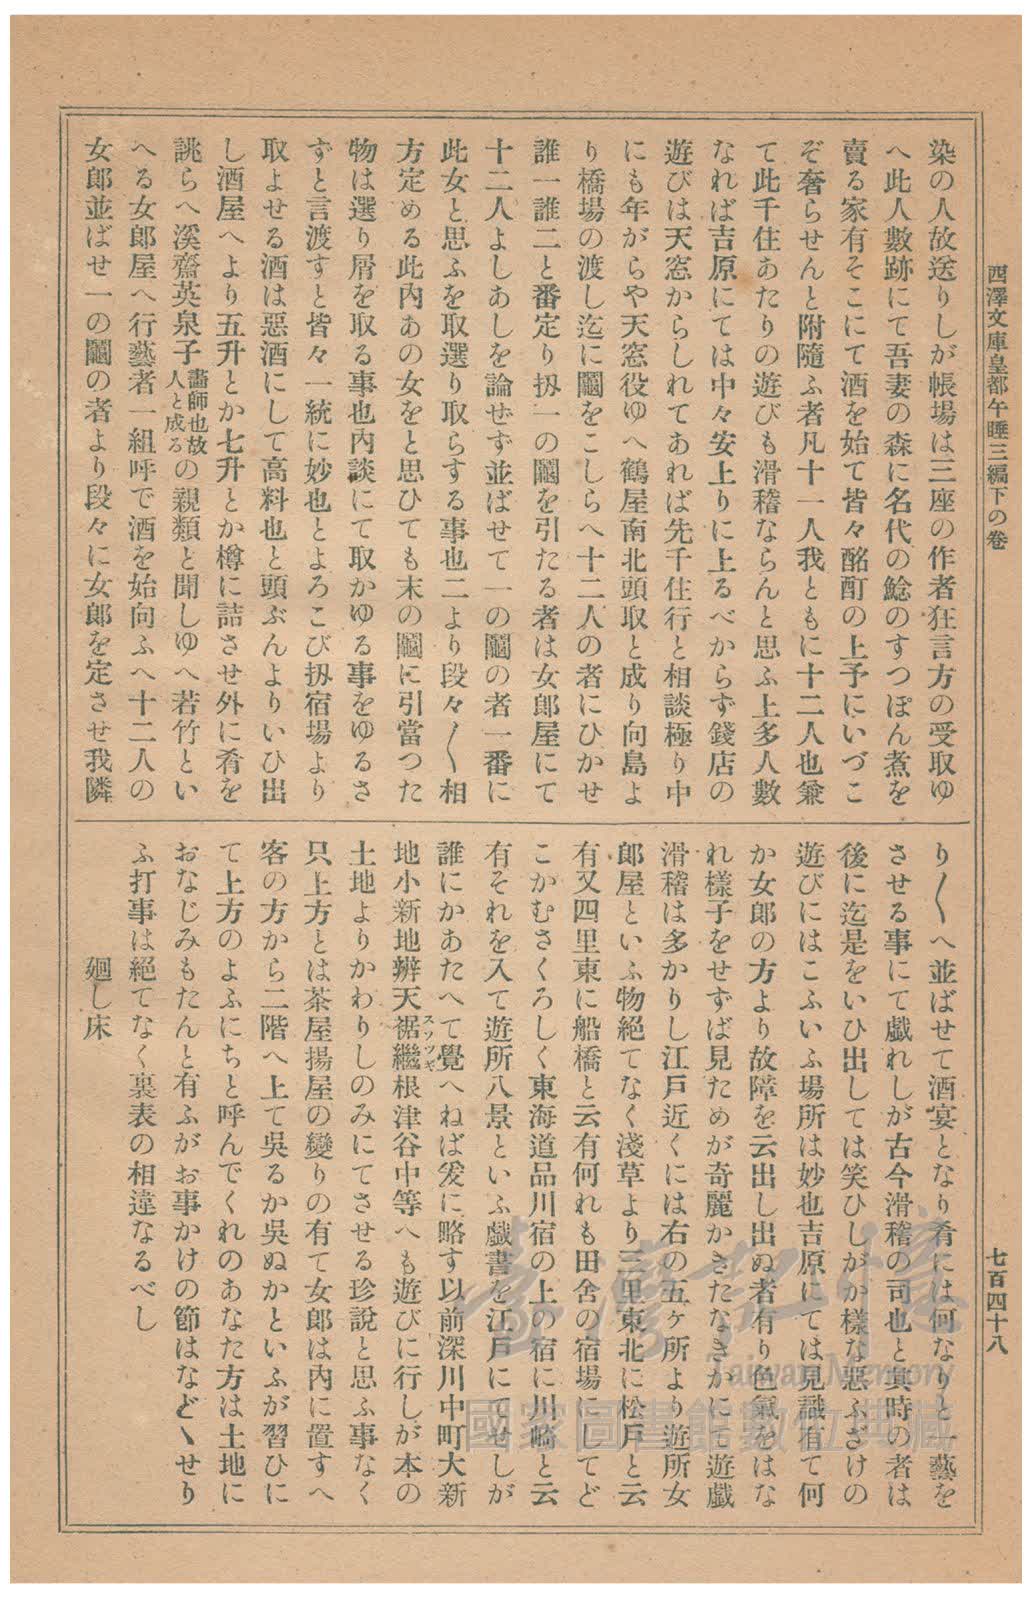 西澤文庫皇都午睡三編下の卷
七百四十八
染の人故送りしが帳場は三座の作者狂言方の受取ゆ
へ此人數跡にて吾妻の森に名代の鯰のすつぽん煮を
賣る家有そこにて酒を始て皆々酩酊の上予にいづこ
ぞ奢らせんと附隨ふ者凡十一人我ともに十二人也兼
て此千住あたりの遊びも滑稽ならんと思ふ上多人數
なれば吉原にては中々安上りに上るべからず錢店の
遊びは天窓からしれてあれば先千住行と相談極り中
にも年がらや天窓役ゆへ鶴屋南北頭取と成り向島よ
り橋場の渡し迄に鬮をこしらへ十二人の者にひかせ
誰一誰二と番定り扨一の鬮を引たる者は女郎屋にて
十二人よしあしを論ぜず並ばせて一の鬮の者一番に
此女と思ふを取選り取らする事也二より段々〳〵相
方定める此內あの女をと思ひても末の鬮に引當つた
物は選り屑を取る事也內談にて取かゆる事をゆるさ
ずと言渡すと皆々一統に妙也とよろこび扨宿場より
取よせる酒は惡酒にして高料也と頭ぶんよりいひ出
し酒屋へより五升とか七升とか樽に詰させ外に肴を
誂らへ溪齋英泉子畵師也故人と成るの親類と聞しゆへ若竹とい
へる女郎屋へ行藝者一組呼で酒を始向ふへ十二人の
女郎並ばせ一の鬮の者より段々に女郎を定させ我隣
り〳〵へ並ばせて酒宴となり肴には何なりと一藝を
させる事にて戯れしが古今滑稽の司也と其時の者は
後に迄是をいひ出しては笑ひしがか樣な惡ふざけの
遊びにはこふいふ場所は妙也吉原にては見識有て何
か女郎の方より故障を云出し出ぬ者有り色氣をはな
れ樣子をせずば見ためが奇麗かきたなきかにて遊戯
滑稽は多かりし江戸近くには右の五ヶ所より遊所女
郎屋といふ物絕てなく淺草より三里東北に松戸と云
有又四里東に船橋と云有何れも田舍の宿場にしてど
こかむさくろしく東海道品川宿の上の宿に川崎と云
有それを入て遊所八景といふ戯書を江戸にてせしが
誰にかあたへて覺へねば爰に略す以前深川中町大新
地小新地辨天裾繼スソツギ根津谷中等へも遊びに行しが本の
土地よりかわりしのみにてさせる珍說と思ふ事なく
只上方とは茶屋揚屋の變りの有て女郎は內に置すへ
客の方から二階へ上て吳るか吳ぬかといふが習ひに
て上方のよふにちと呼んでくれのあなた方は土地に
おなじみもたんと有ふがお事かけの節はなど〱せり
ふ打事は絕てなく裏表の相違なるべし
廻し床
臺灣記憶
Taiwan Memory
國家圖書館數位典藏